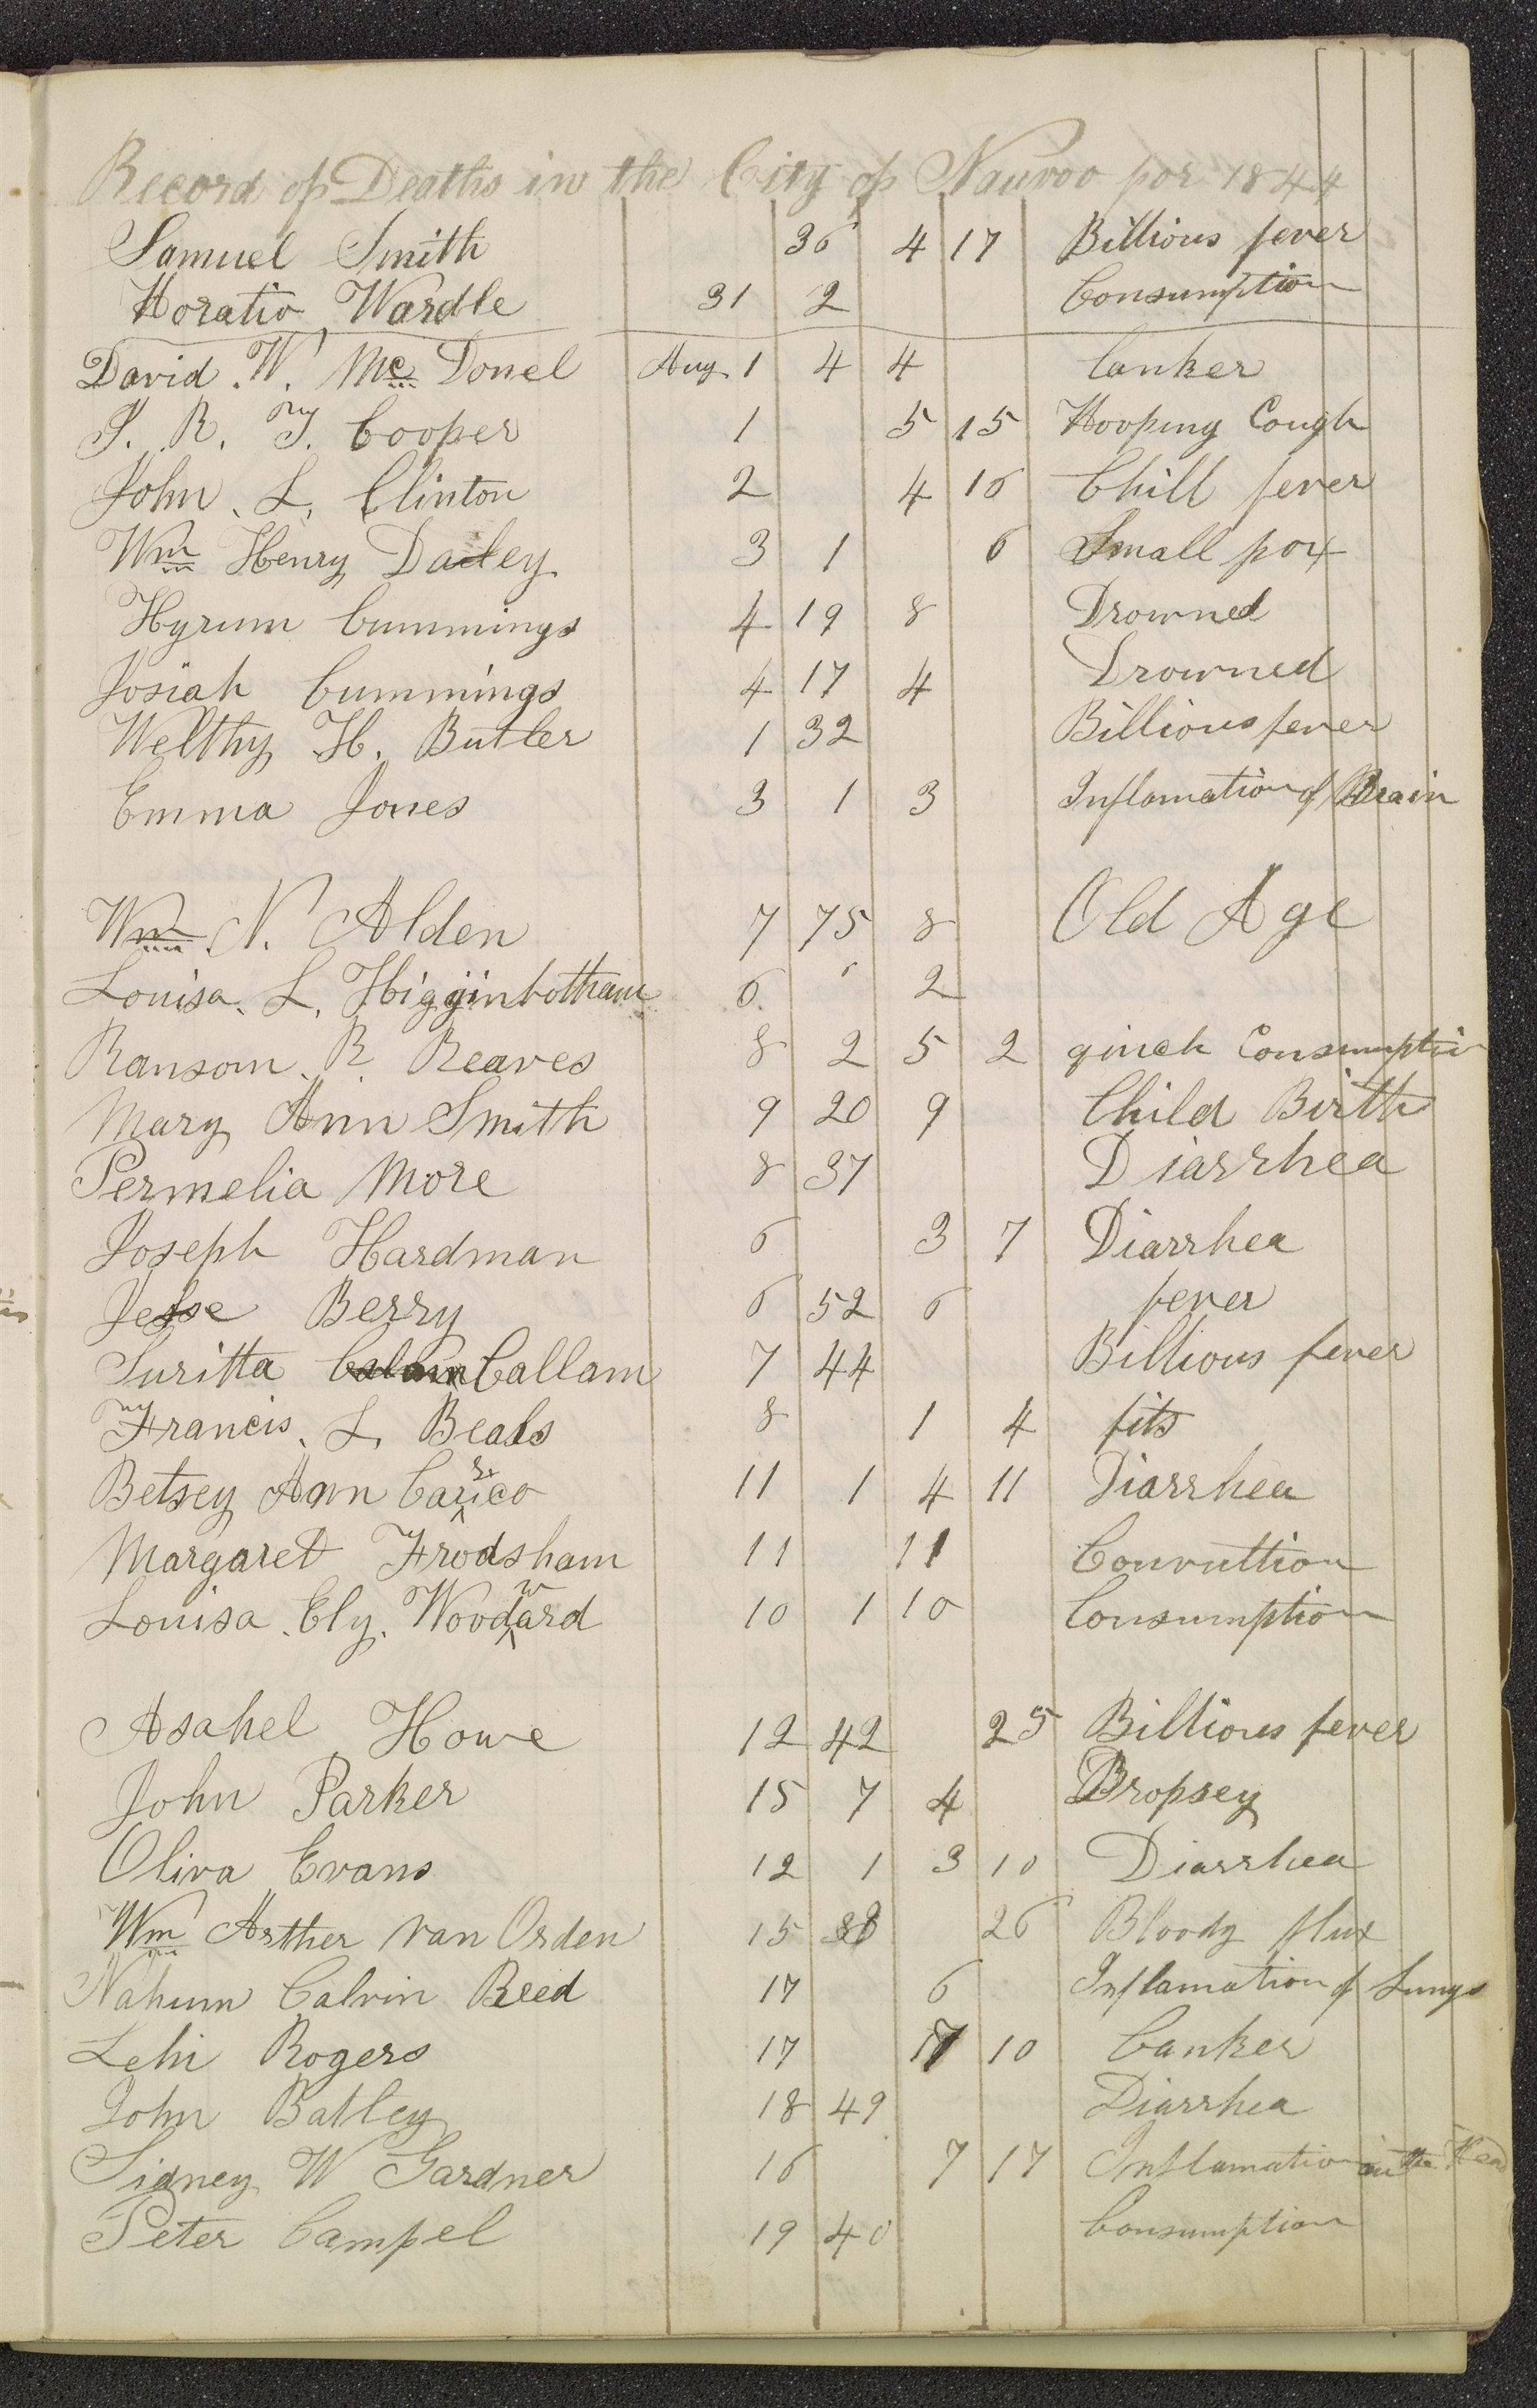 Record of Deaths in the City of Nauvoo for 1844
Samuel Smith 36 4 17 Billious fever
Horatio Wardle 31 2 Consumption
David . W. Mc Donel Aug. 1 4 4 Canker
J. R. T. Cooper 1 5 15 Hooping Cough
John . L. Clinton 2 4 16 Chill fever
Wm Henry Dailey 3 1 6 Small pox
Hyrum Cummings 4 19 8 Drowned
Josiah Cummings 4 17 4 Drowned
Welthy H. Butler 1 32 Billious fever
Emma Jones 3 1 3 Inflamation of Brain
Wm N. Alden 7 75 8 Old Age
Louisa. L. Higginbotham 6 2
Ransom . R Reaves 8 2 5 2 quick Consumption
Mary Ann Smith 9 20 9 Child Birth
Permelia More 8 37 Diarrhea
Joseph Hardman 6 3 7 Diarrhea
Jesse Berry 6 52 6 fever
Suritta Callam 7 44 Billious fever
Francis . L. Beals 8 1 4 fits
Betsey Ann 11 1 4 11 Diarrhea
Margaret Frodsham 11 11 Convultion
Louisa . Ely. Woodward 10 1 10 Consumption
Asahel Howe 12 42 25 Billious fever
John Parker 15 7 4 Dropsey
Oliva Evans 12 1 3 10 Diarrhea
Wm Arther Van Orden 15 26 Bloody flux
Nahum Calvin Reed 17 6 Inflamation of Lungs
Lehi Rogers 17 10 Canker
John Batley 18 49 Diarrhea
Sidney W Gardner 16 7 17 Inflamation in the Head
Peter Campel 19 40 Consumption